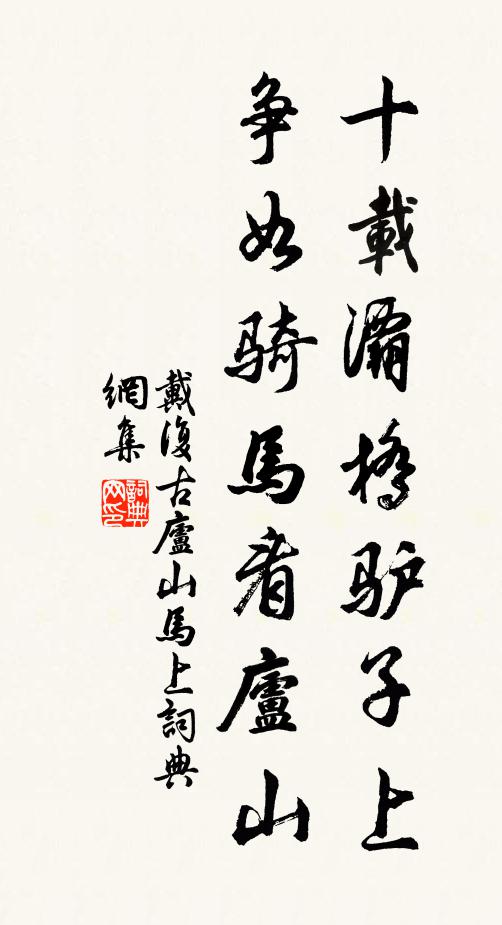 十載灞橋驴子上
争如骑馬看廬山
戴復古廬山馬上詞典
網集
詞典
网印